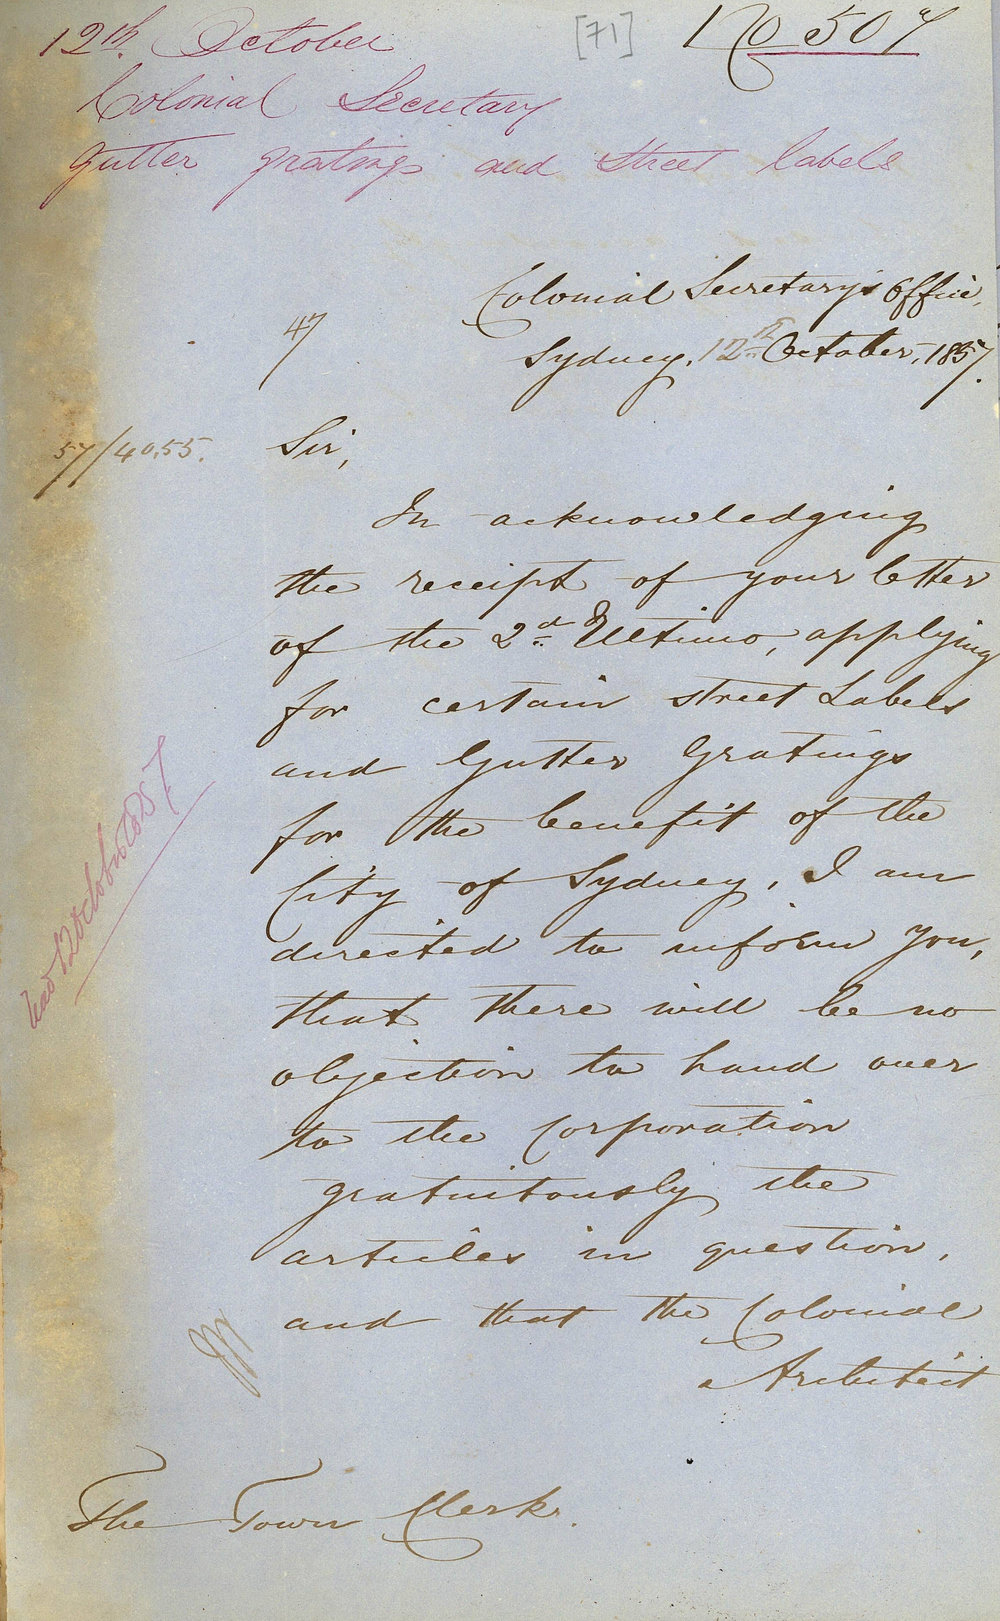 12th October
[71]
No 507
Colonial Secretary
Gutter gratings and Street labels
Colonial Secretary's Office,
Sydney, 12th October, 1857.
47
57/4055.
Sir,
In acknowledging
the receipt of your letter
of the 2d Ultimo, applying
for certain street Labels
and Gutter Gratings
for the benefit of the
City of Sydney, I am
directed to inform you,
that there will be no
objection to hand over
to the Corporation
gratuitously the
articles in question,
and that the Colonial
Architect
12 October 1857
The Town Clerk.